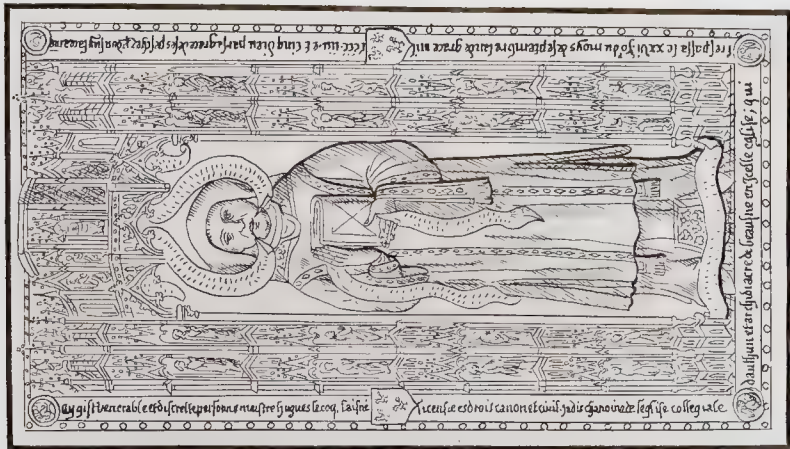 Cy gist venerable et discrette personne maistre hugues le coq. laisné
licensié es drois canon et civil. jadis chanoine de leglise collegiale
daulthun et archidiacre de beaulne en icelle eglise; qui
trespassa le xxvi jo.r du moys de septembre lan de grace mil
cccc iiii.xx et cinq dieu par sa grace